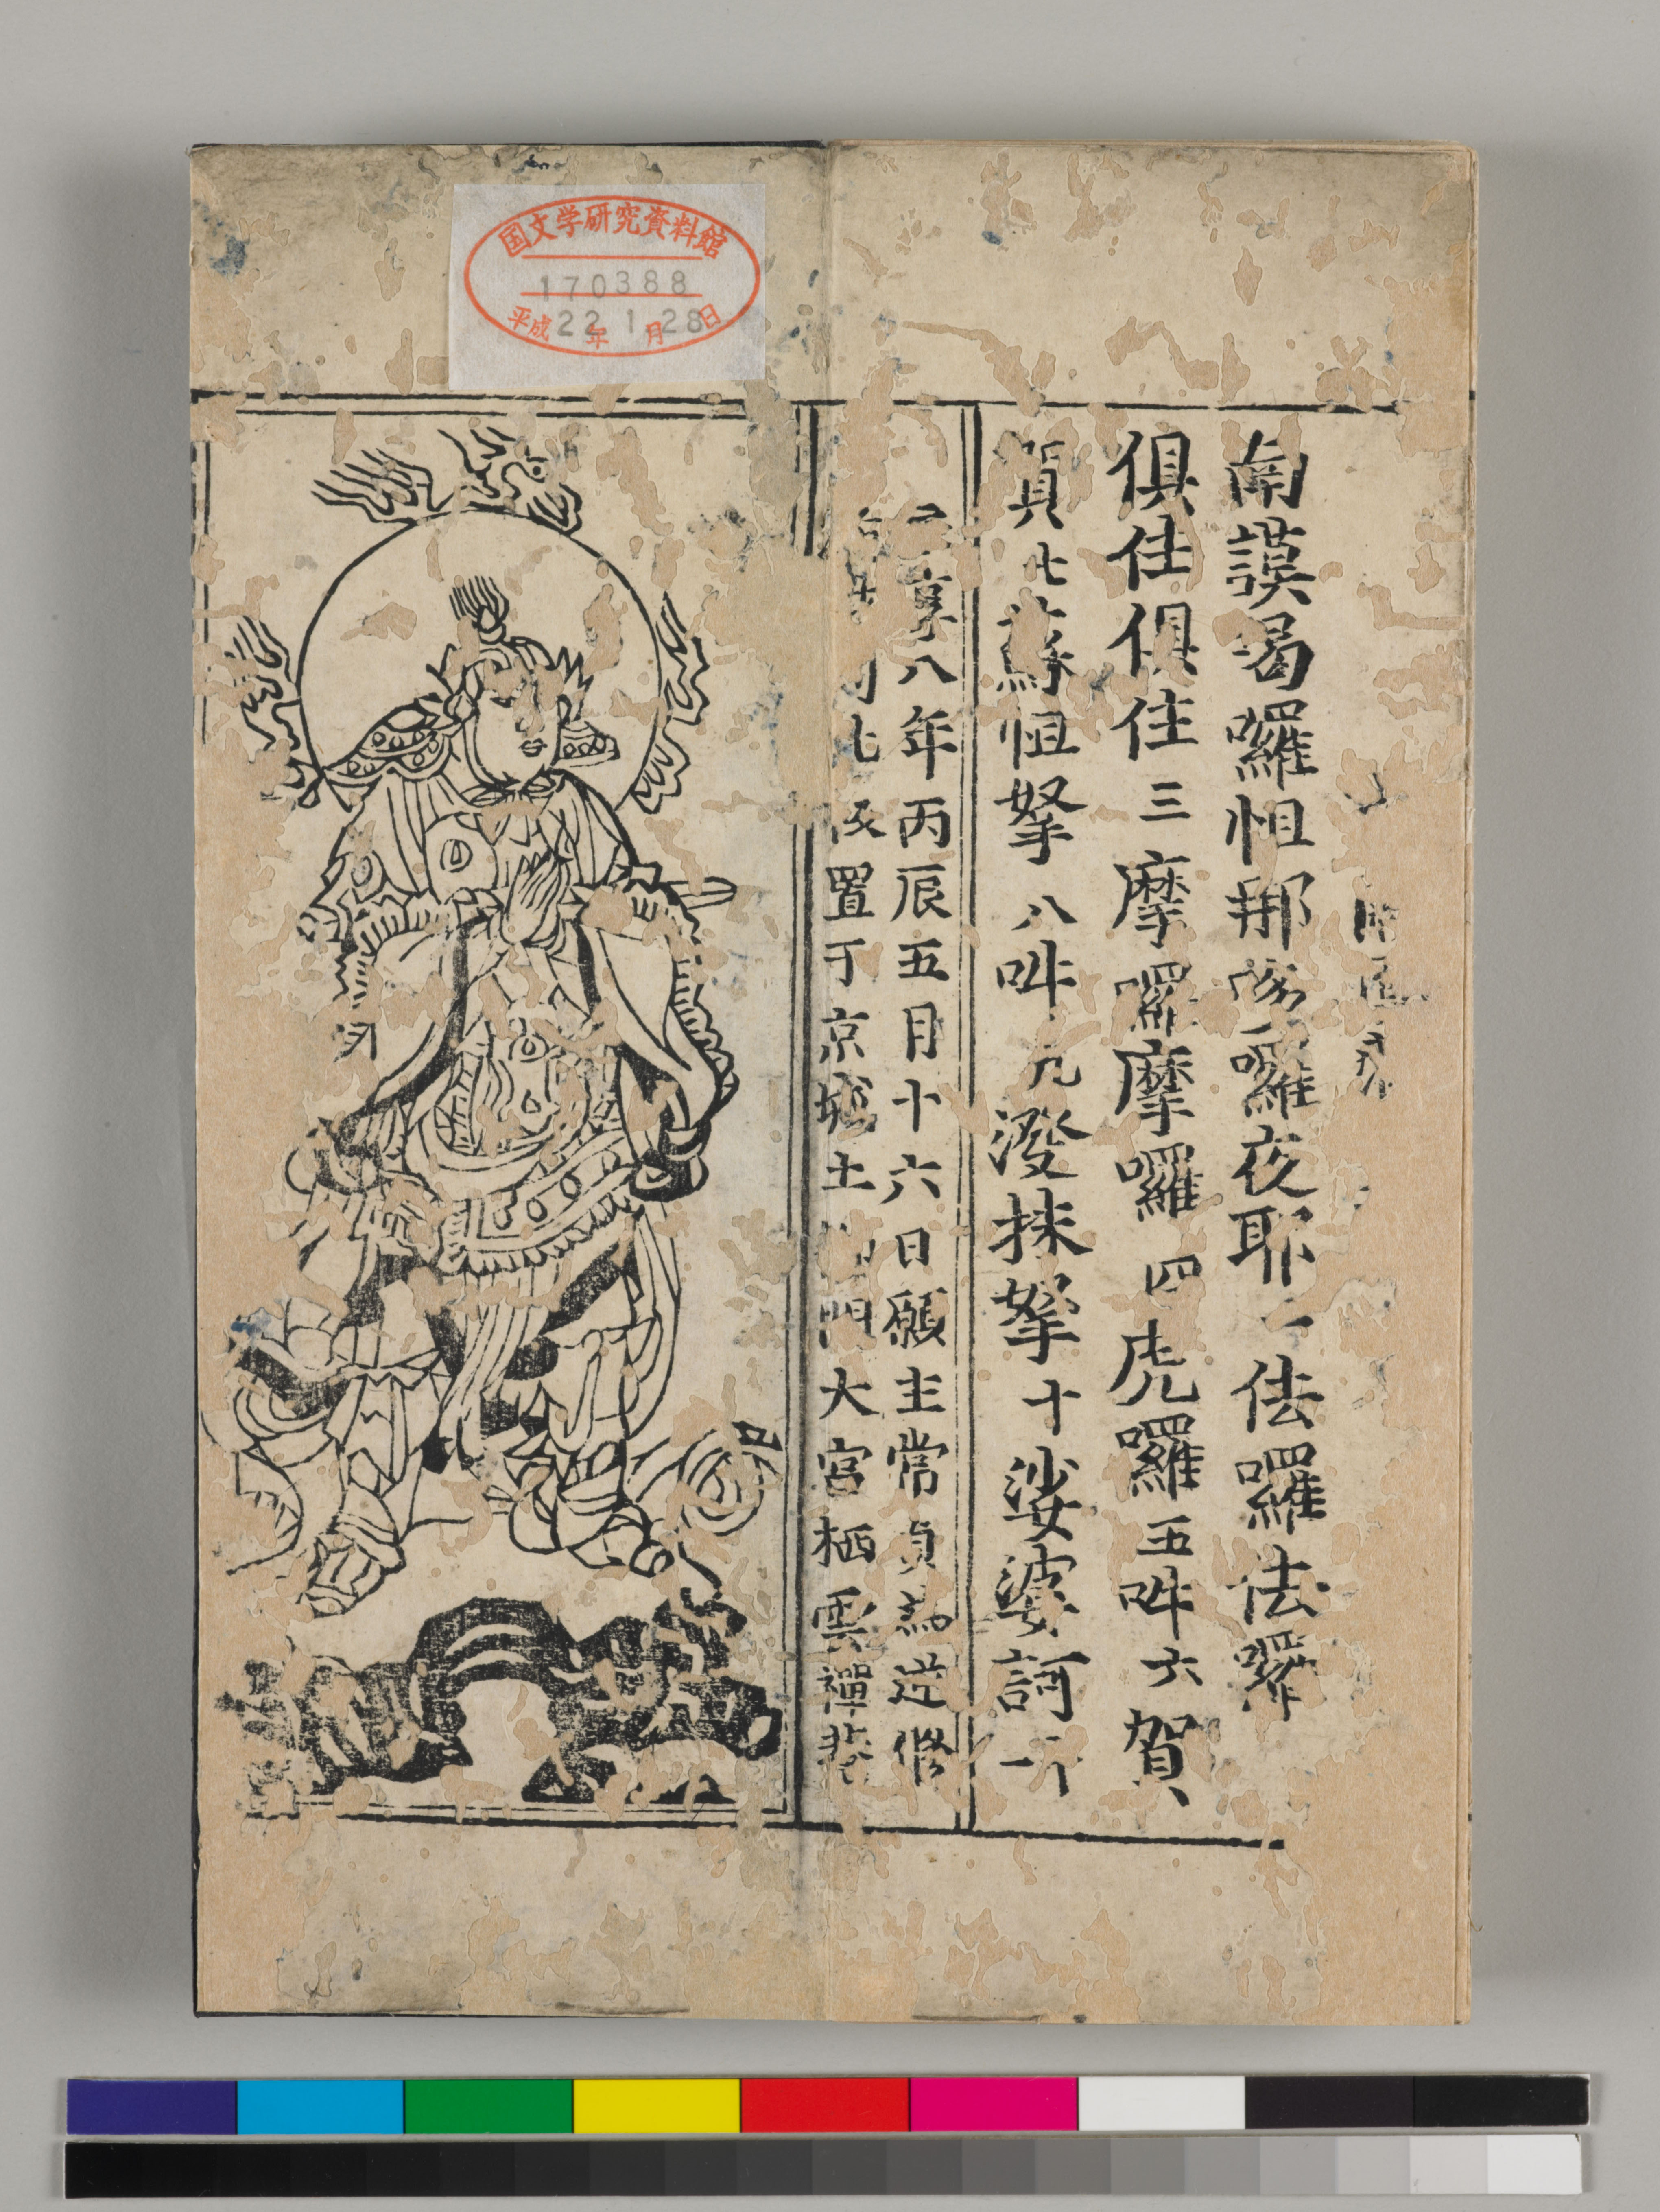 南謨曷囉怛那怛囉夜耶一佉囉佉囉
俱住俱住三摩囉摩囉四虎囉五吽六賀
賀七蘇怛拏八吽九潑抹拏十娑婆訶十一
享八年丙辰五月十六日願主常貞為逆修
七 置于京城土門大宮栖雲禅菴
国文学研究資料館
170388
平成22年1月28日